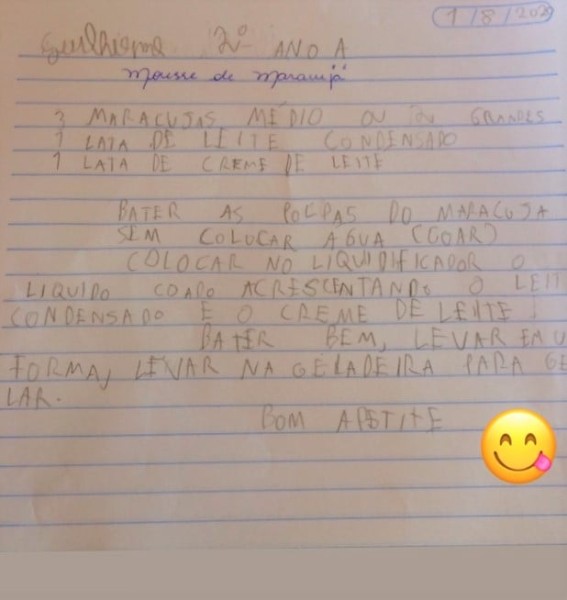 1/8/2020
Guilherme 2º ANO A
Mousse de Maracujá
3 MARACUJAS MÉDIO OU 2 GRANDES
1 LATA DE LEITE CONDENSADO
1 LATA DE CREME DE LEITE
BATER AS POLPAS DO MARACUJA
SEM COLOCAR ÁGUA (COAR)
COLOCAR NO LIQUIDIFICADOR O
LIQUIDO COADO ACRESCENTANDO O LEIT
CONDENSADO E O CREME DE LEITE
BATER BEM, LEVAR EM U
FORMA, LEVAR NA GELADEIRA PARA GE
LAR.
BOM APETITE